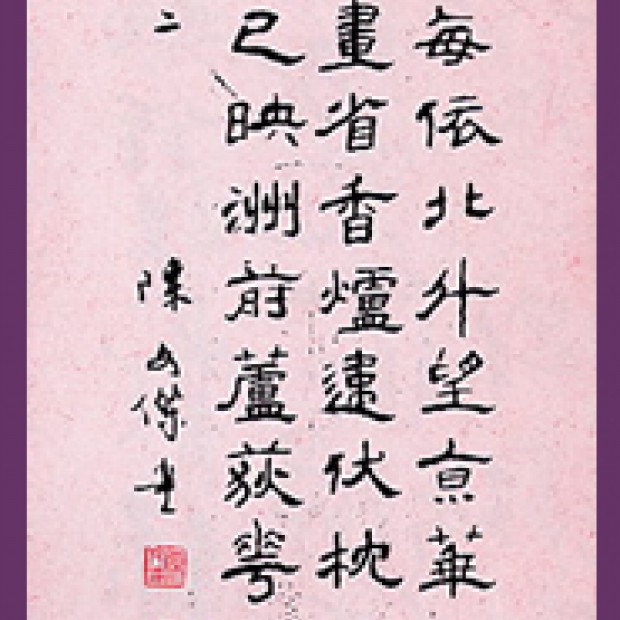 每依北斗望京華
畫省香爐違伏枕
已映洲前蘆荻花
二 陳文傑書